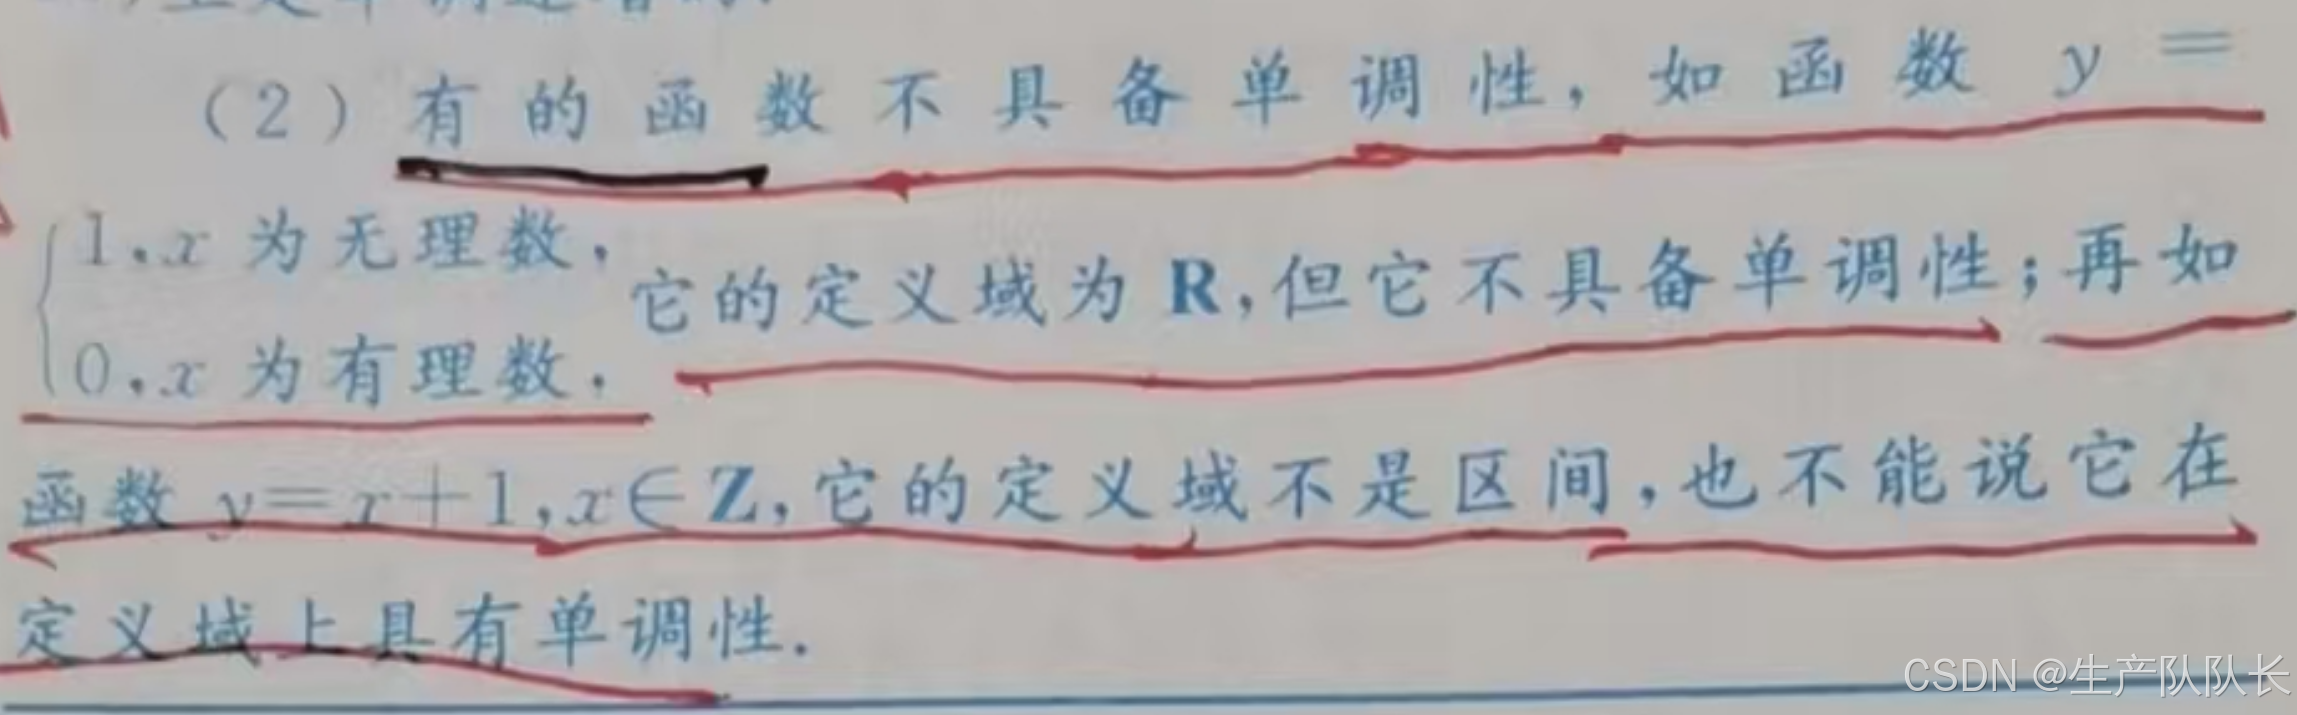 上是单调递增的.
(2)有的函数不具备单调性,如函数 y =
1,x 为无理数,
它的定义域为 R,但它不具备单调性;再如
0,x 为有理数,
函数 y=x+1,x∈Z,它的定义域不是区间,也不能说它在
定义域上具有单调性.
CSDN @生产队队长